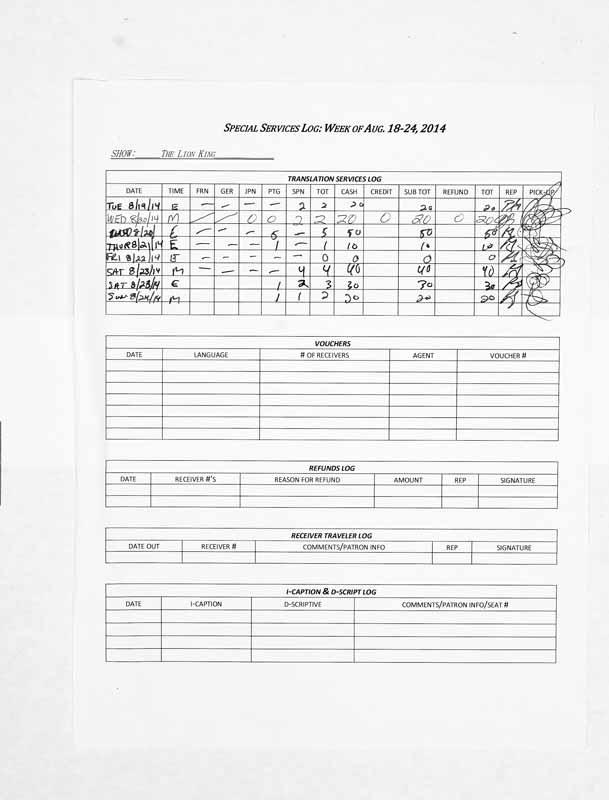 SPECIAL SERVICES LOG: WEEK OF AUG. 18-24, 2014
SHOW: THE LION KING
TRANSLATION SERVICES LOG
DATE TIME FRN GER JPN PTG SPN TOT CASH CREDIT SUB TOT REFUND TOT REP PICK-UP
TUE 8/19/14 E — — — — 2 2 20 20 20
WED 8/20/14 M 0 0 2 2 20 0 20 0 20
WED 8/20/ E — — — 5 — 5 50 50 50
THUR 8/21/14 E — — — 1 — 1 10 10 10
FRI 8/22/14 E — — — — — 0 0 0 0
SAT 8/23/14 M — — — — 4 4 40 40 40
SAT 8/23/14 E 1 2 3 30 30 30
SUN 8/24/14 M 1 1 2 20 20 20
VOUCHERS
DATE LANGUAGE # OF RECEIVERS AGENT VOUCHER #
REFUNDS LOG
DATE RECEIVER #'S REASON FOR REFUND AMOUNT REP SIGNATURE
RECEIVER TRAVELER LOG
DATE OUT RECEIVER # COMMENTS/PATRON INFO REP SIGNATURE
I-CAPTION & D-SCRIPT LOG
DATE I-CAPTION D-SCRIPTIVE COMMENTS/PATRON INFO/SEAT #